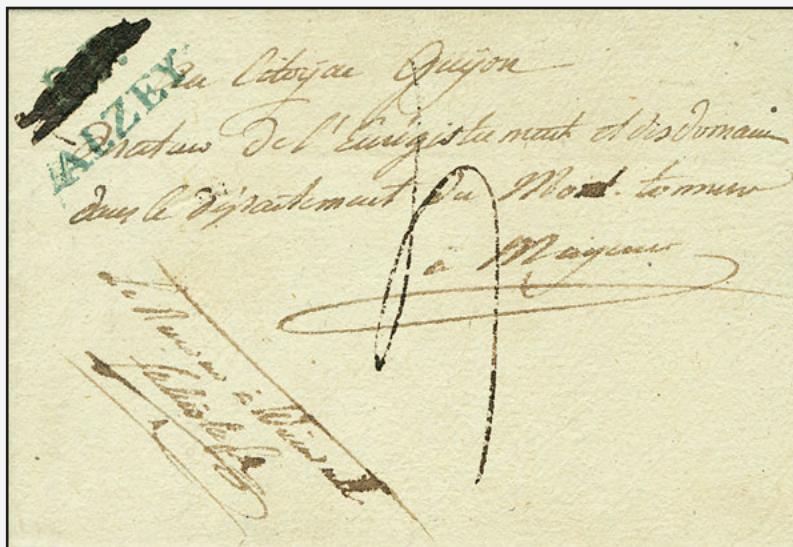 Au Citoyen Guijon
Directeur de l'Enregistrement et des domaines
dans le département du Mont-tonnerre
à Mayence
ALZEY
Le Receveur à